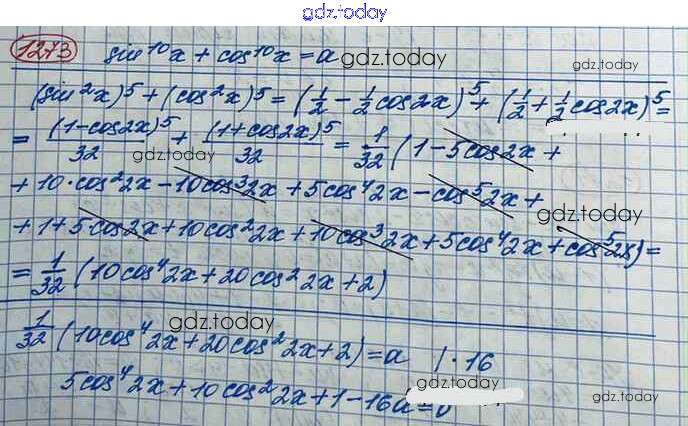 gdz.today
1273 sin¹⁰x + cos¹⁰x = a gdz.today
(sin²x)⁵ + (cos²x)⁵ = (1/2 - 1/2 cos2x)⁵ + (1/2 + 1/2 cos2x)⁵ =
= (1-cos2x)⁵/32 + (1+cos2x)⁵/32 = 1/32 (1 - 5cos2x +
gdz.today
+ 10·cos²2x - 10cos³2x + 5cos⁴2x - cos⁵2x +
gdz.today
+ 1 + 5cos2x + 10cos²2x + 10cos³2x + 5cos⁴2x + cos⁵2x) =
= 1/32 (10cos⁴2x + 20cos²2x + 2)
gdz.today
1/32 (10cos⁴2x + 20cos²2x + 2) = a | · 16
5cos⁴2x + 10cos²2x + 1 - 16a = 0
gdz.today